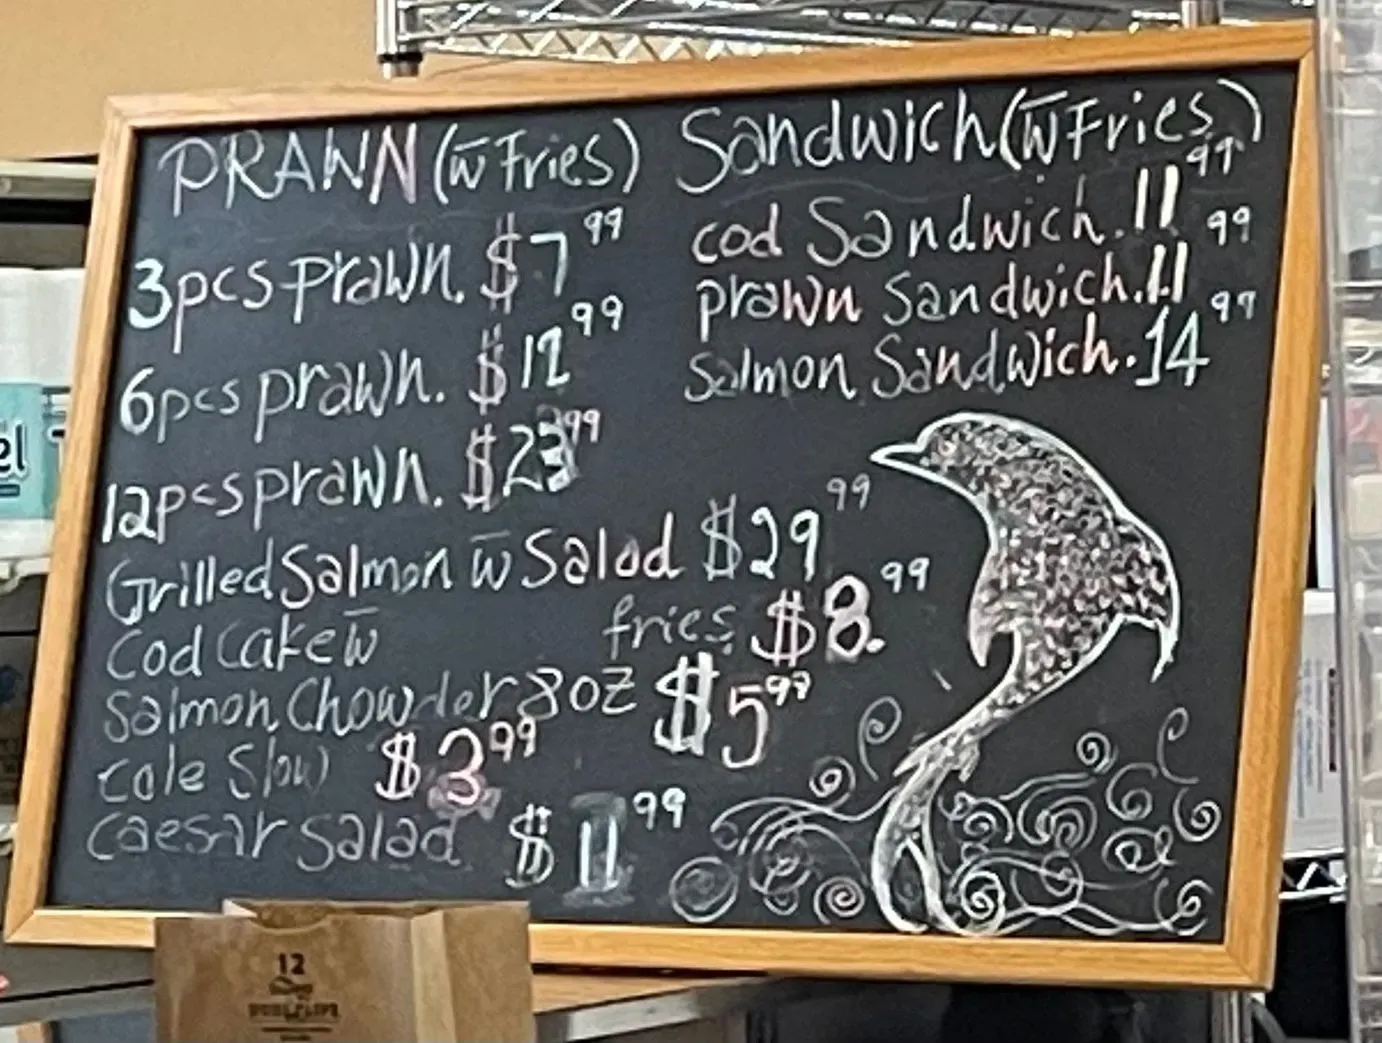 PRAWN (w̄ Fries)
3pcs prawn. $7.99
6pcs prawn. $12.99
12pcs prawn. $23.99
Grilled Salmon w̄ Salad $29.99
Cod Cake w̄ fries $8.99
Salmon Chowder 8oz $5.99
Cole Slow $3.99
Caesar Salad $11.99
Sandwich (w̄ Fries)
cod Sandwich. 11.99
prawn Sandwich. 11.99
Salmon Sandwich. 14.99
el
12